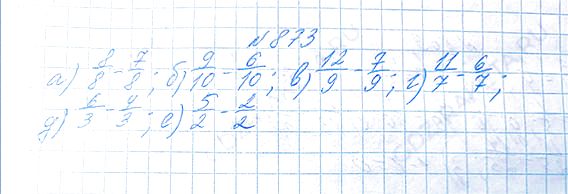 №873
а) 8/8 - 7/8; б) 9/10 - 6/10; в) 12/9 - 7/9; г) 11/7 - 6/7;
д) 6/3 - 4/3; е) 5/2 - 2/2